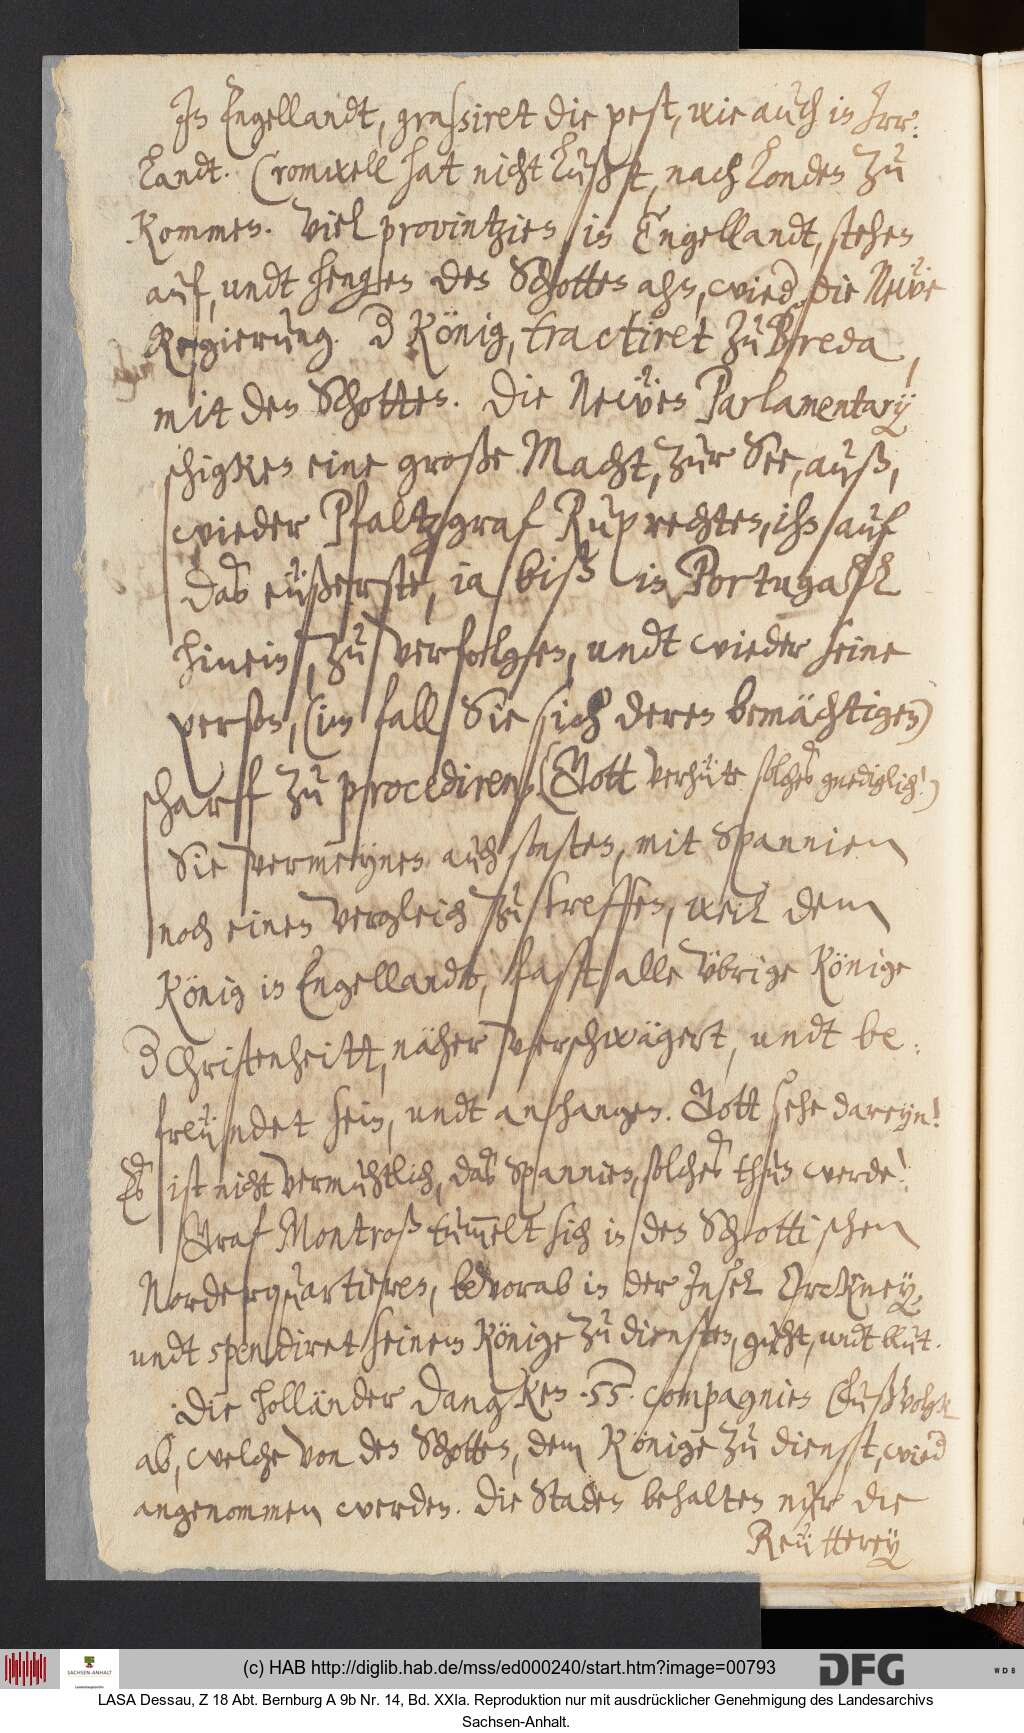 In Engellandt, grassiret die pest, wie auch in Irr-
landt. Cromwell hat nicht lußt, nach Londen zu
kommen. Viel provintzien, in Engellandt, stehen
auf, undt hengen den Schotten ahn, wied die Neẅe
Regierung. D König, tractiret zu Breda,
mit den Schotten. Die Neẅen Parlamentarij
schigken eine große Macht, zur See, auß,
wieder Pfaltzgraf Ruprechten, ihn auf
das eüßerste, ia biß in Portugall
hinein, zu verfolgen, undt wieder seine
person, (im fall Sie sich deren bemächtigen)
scharff zu procediren, (Gott verhüte solches gnediglich!)
Sie vermeynen auch sonsten, mit Spannien
noch einen vergleich zu treffen, weil dem
König in Engellandt, fast alle übrige Könige
D Christenheitt, näher verschwägert, undt be-
freündet sein, undt anhangen. Gott sehe dareyn!
Es ist nicht vermuhtlich, das Spannien, solches thun werde!
Graf Montroß tum̅elt sich in den Schottischen
Norderquartieren, bevorab in der Insel Orckney,
undt spendiret seinem Könige zu diensten, guht, undt blut.
Die Holländer dangken 55 compagnien Fußvolgk
ab, welche von den Schotten, dem Könige zu dienst, wied
angenommen werden. Die Staden behalten nur die
Reütterey
(c) HAB http://diglib.hab.de/mss/ed000240/start.htm?image=00793
DFG
WDB
SACHSEN-ANHALT
LASA Dessau, Z 18 Abt. Bernburg A 9b Nr. 14, Bd. XXIa. Reproduktion nur mit ausdrücklicher Genehmigung des Landesarchivs
Sachsen-Anhalt.